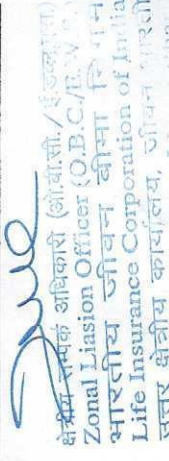 क्षेत्रीय सम्पर्क अधिकारी (ओ.बी.सी./ई.डब्ल्यू.एस)
Zonal Liasion Officer (O.B.C./E.W.
भारतीय जीवन बीमा निगम
Life Insurance Corporation of India
उत्तर क्षेत्रीय कार्यालय, जीवन भारती